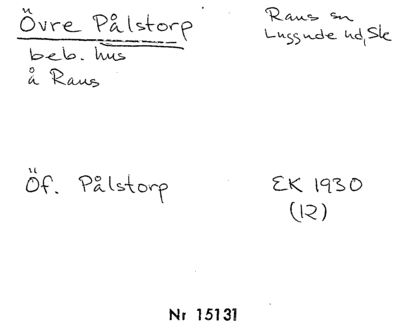 Övre Pålstorp
Raus sn
Luggude hd, Sk
beb. hus
å Raus
Öf. Pålstorp
EK 1930
(12)
Nr 15131